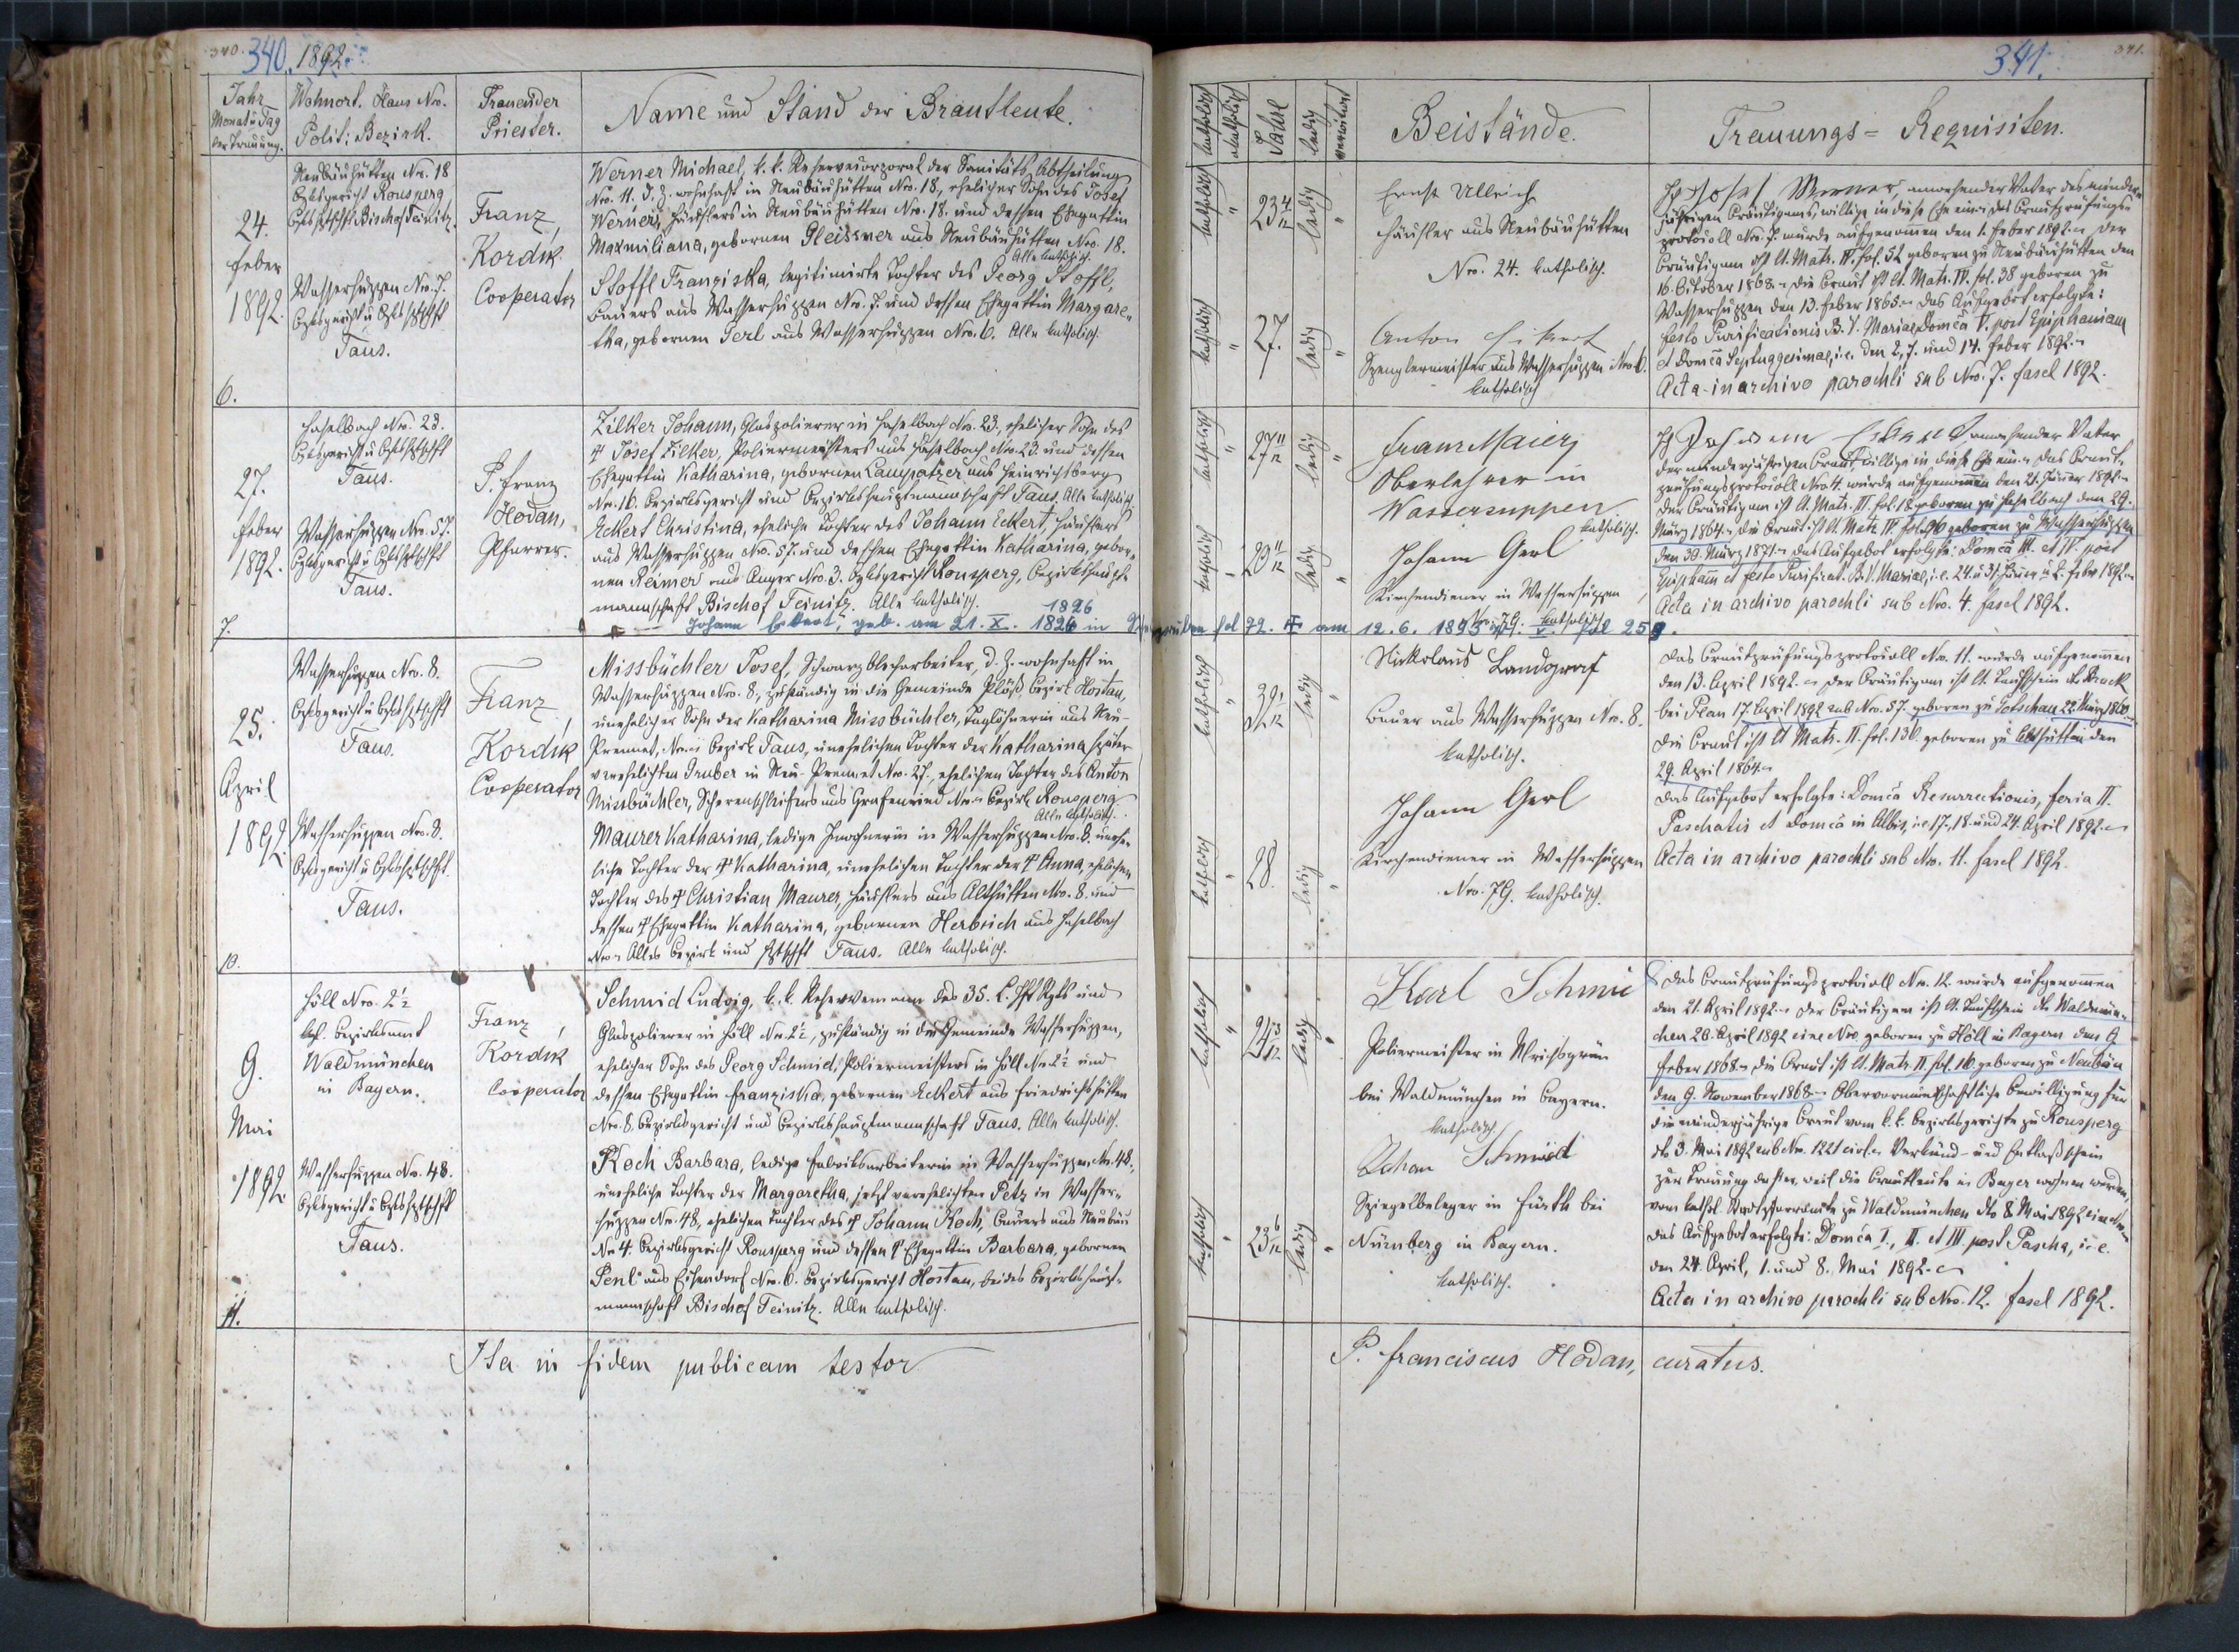 340. 340. 1892.
Jahr
Monat u Tag
der Trauung.
Wohnort. Haus Nro.
Polit: Bezirk.
Trauender
Priester.
Name und Stand der Brautleute.
24.
Feber
1892.
6.
Neubäuhütten Nro. 18
Bzksgericht Ronsperg
Bischof Teinitz.
Wassersuppen Nro. 7.
Taus.
Franz
Kordik
Cooperator
Werner Michael, k. k. Reservecorporal der Sanitäts Abtheilung
Nro. 11. d. Z. wohnhaft in Neubäuhütten Nro. 18., ehelicher Sohn des Josef
Werner, Häuslers in Neubäuhütten Nro. 18. und dessen Ehegattin
Maxmiliana, gebornen Pleissner aus Neubäuhütten Nro. 18.
Alle katholisch.
Stoffl Franziska, legitimirte Tochter des Georg Stoffl,
Bauers aus Wassersuppen Nro. 7. und dessen Ehegattin Margare-
tha, gebornen Gerl aus Wassersuppen Nro. 6. Alle katholisch.
27.
Feber
1892.
7.
Haselbach Nro. 23.
Taus.
Wassersuppen Nro. 57.
Taus.
P. Franz
Hodan,
Pfarrer.
Zilker Johann, Glaspolierer in Haselbach Nro. 23., ehelicher Sohn des
† Josef Zilker, Poliermeisters aus Haselbach Nro. 23. und dessen
Ehegattin Katharina, gebornen Laupatzer aus Heinrichsberg
Nro. 16. Bezirksgericht und Bezirkshauptmannschaft Taus. Alle katholisch.
Eckert Christina, eheliche Tochter des Johann Eckert, Häuslers
aus Wassersuppen Nro. 57. und dessen Ehegattin Katharina, gebor-
nen Reimer aus Anger Nro. 3. Bzksgericht Ronsperg, Bezirkshaupt-
mannschaft Bischof Teinitz. Alle katholisch.
1826
Johann Eckert, geb. am 21. X. 1826 in
25.
April
1892
10.
Wassersuppen Nro. 8.
Taus.
Wassersuppen Nro. 8.
Taus.
Franz
Kordik
Cooperator
Missbüchler Josef, Schwarzblecharbeiter, d. Z. wohnhaft in
Wassersuppen Nro. 8., zuständig in die Gemeinde Plöß Bezirk Hostau,
unehelicher Sohn der Katharina Missbüchler, Taglöhnerin aus Neu-
Prennet, Bezirk Taus, unehelichen Tochter der Katharina später
verehelichten Gruber in Neu-Prennet Nro. 27., ehelichen Tochter des Anton
Missbüchler, Scherenschleifers aus Grafenried Bezirk Ronsperg
Alle katholisch.
Maurer Katharina, ledige Inwohnerin in Wassersuppen Nro. 8. unehe-
liche Tochter der † Katharina, unehelichen Tochter der † Anna, ehelichen
Tochter des † Christian Maurer, Häuslers aus Althütten Nro. 8. und
dessen † Ehegattin Katharina, gebornen Herbrich aus Haselbach
Alles Bezirk und Taus. Alle katholisch.
9.
Mai
1892
11.
Höll Nro. 2½
Waldmünchen
in Bayern.
Wassersuppen Nro. 48.
Taus.
Franz
Kordik
Cooperator
Schmid Ludwig, k. k. Reservemann des 35. und
Glaspolierer in Höll Nro. 2½, zuständig in die Gemeinde Wassersuppen,
ehelicher Sohn des Georg Schmid, Poliermeisters in Höll Nro 2½ und
dessen Ehegattin Franziska, gebornen Eckert aus Friedrichshütten
Nro. 8. Bezirksgericht und Bezirkshauptmannschaft Taus. Alle katholisch.
Koch Barbara, ledige Fabriksarbeiterin in Wassersuppen Nro. 48.,
uneheliche Tochter der Margaretha, jetzt verehelichten Petz in Wasser-
suppen Nro. 48., ehelichen Tochter des † Johann Koch, Bauers aus Neubäu
Nro 4. Bezirksgericht Ronsperg und dessen † Ehegattin Barbara, gebornen
Penl aus Eisendorf Nro. 6. Bezirksgericht Hostau, beides Bezirkshaupt-
mannschaft Bischof Teinitz. Alle katholisch.
Ita in fidem publicam testor
341. 341.
katholisch
akatholisch
Jahre
ledig
verwitwet
Beistände.
Trauungs-Requisiten.
katholisch
"
23 4/12
ledig
"
katholisch
"
27.
ledig
"
Ernst Ullrich
Häusler aus Neubäuhütten
Nro. 24. katholisch.
Anton Eckert
Spenglermeister aus Wassersuppen Nro 6.
katholisch
Ich Josef Werner, anwesender Vater des minder-
jährigen Bräutigams, willige in diese Ehe ein. Das Brautprüfungs-
protocoll Nro. 7. wurde aufgenommen den 1. Feber 1892. Der
Bräutigam ist lt. Matr. IV. fol. 52 geboren zu Neubäuhütten den
16. October 1868. Die Braut ist lt. Matr. IV. fol. 38 geboren zu
Wassersuppen den 13. Feber 1865. Das Aufgebot erfolgte:
Festo Purificationis B. V. Mariae, Domca V. post Epiphaniam
et Domca Septuagesimae, i. e. den 2., 7. und 14. Feber 1892.
Acta in archivo parochli sub Nro. 7. fasel 1892.
katholisch
"
27 11/12
ledig
"
katholisch
"
20 11/12
ledig
"
Franz Maier,
Oberlehrer in
Wassersuppen
katholisch.
Johann Gerl
Kirchendiener in Wassersuppen
Nro. 79. katholisch
Ich Johann Eckert anwesender Vater
der minderjährigen Braut, willige in diese Ehe ein. Das Braut-
prüfungsprotocoll Nro 4. wurde aufgenommen den 21. Jänner 1892.
Der Bräutigam ist lt. Matr. III. fol. 18 geboren zu Haselbach den 29.
März 1864. Die Braut ist lt Matr. IV. geboren zu Wassersuppen
den 30. März 1871. Das Aufgebot erfolgte: Domca III. et IV. post
Epipham et festo Purificat. B. V. Mariae, i. e. 24. u 31. Jänner u 2. Feber 1892.
Acta in archivo parochli sub Nro. 4. fasel 1892.
fol 72. † am 12. 6. 1893 fol 259.
katholisch
"
32 1/12
ledig
"
katholisch
"
28.
ledig
"
Nickolaus Landgraf
Bauer aus Wassersuppen Nro. 8.
katholisch.
Johann Gerl
Kirchendiener in Wassersuppen
Nro. 79. katholisch.
Das Brautprüfungsprotocoll Nro. 11. wurde aufgenommen
den 13. April 1892. Der Bräutigam ist lt. Taufschein Bruck
bei Plan 17. April 1892 sub Nro. 57. geboren zu Gotschau 22. März 1860.
Die Braut ist lt Matr. II. fol. 136. geboren zu Althütten den
29. April 1864.
Das Aufgebot erfolgte: Domca Resurrectionis, feria II.
Paschatis et Domca in Albis, i. e. 17., 18. und 24. April 1892.
Acta in archivo parochli sub Nro. 11. fasel 1892.
katholisch
"
24 3/12
ledig
"
katholisch
"
23 6/12
ledig
"
Karl Schmid
Poliermeister in Ulrichsgrün
bei Waldmünchen in Bayern.
katholisch.
Johan Schmidt
Spiegelbeleger in Fürth bei
Nürnberg in Bayern.
katholisch.
Das Brautprüfungsprotocoll Nro. 12. wurde aufgenommen
den 21. April 1892. Der Bräutigam ist lt. Taufschein dto Waldmün-
chen 28. April 1892 sine Nro. geboren zu Höll in Bayern den 9
Feber 1868. Die Braut ist lt. Matr. II. fol. 16. geboren zu Neubäu
den 9. November 1868. Obervormundschaftliche Bewilligung für
die minderjährige Braut vom k. k. Bezirksgerichte zu Ronsperg
dto 3. Mai 1892 sub Nro. 1221 civ. Verkünd- und Entlaßschein
zur Trauung daher, weil die Brautleute in Bayer wohnen werden,
vom kathol. Stadtpfarramte zu Waldmünchen dto 8. Mai 1892 sine Nro
Das Aufgebot erfolgte: Domca I., II. et III. post Pascha, i. e.
den 24. April, 1. und 8. Mai 1892.
Acta in archivo parochli sub Nro. 12. fasel 1892.
P. Franciscus Hodan, curatus.